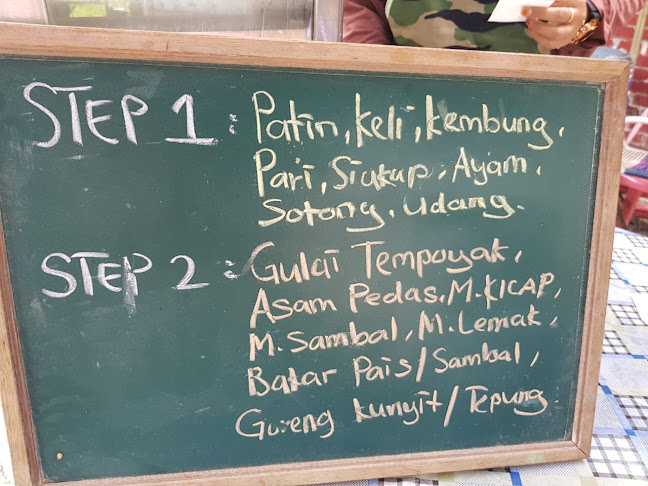 STEP 1 : Patin, keli, kembung,
Pari, Siakap, Ayam,
Sotong, udang.
STEP 2 : Gulai Tempoyak,
Asam Pedas, M. KICAP,
M. Sambal, M. Lemak,
Bakar Pais/Sambal,
Goreng kunyit/Tepung.